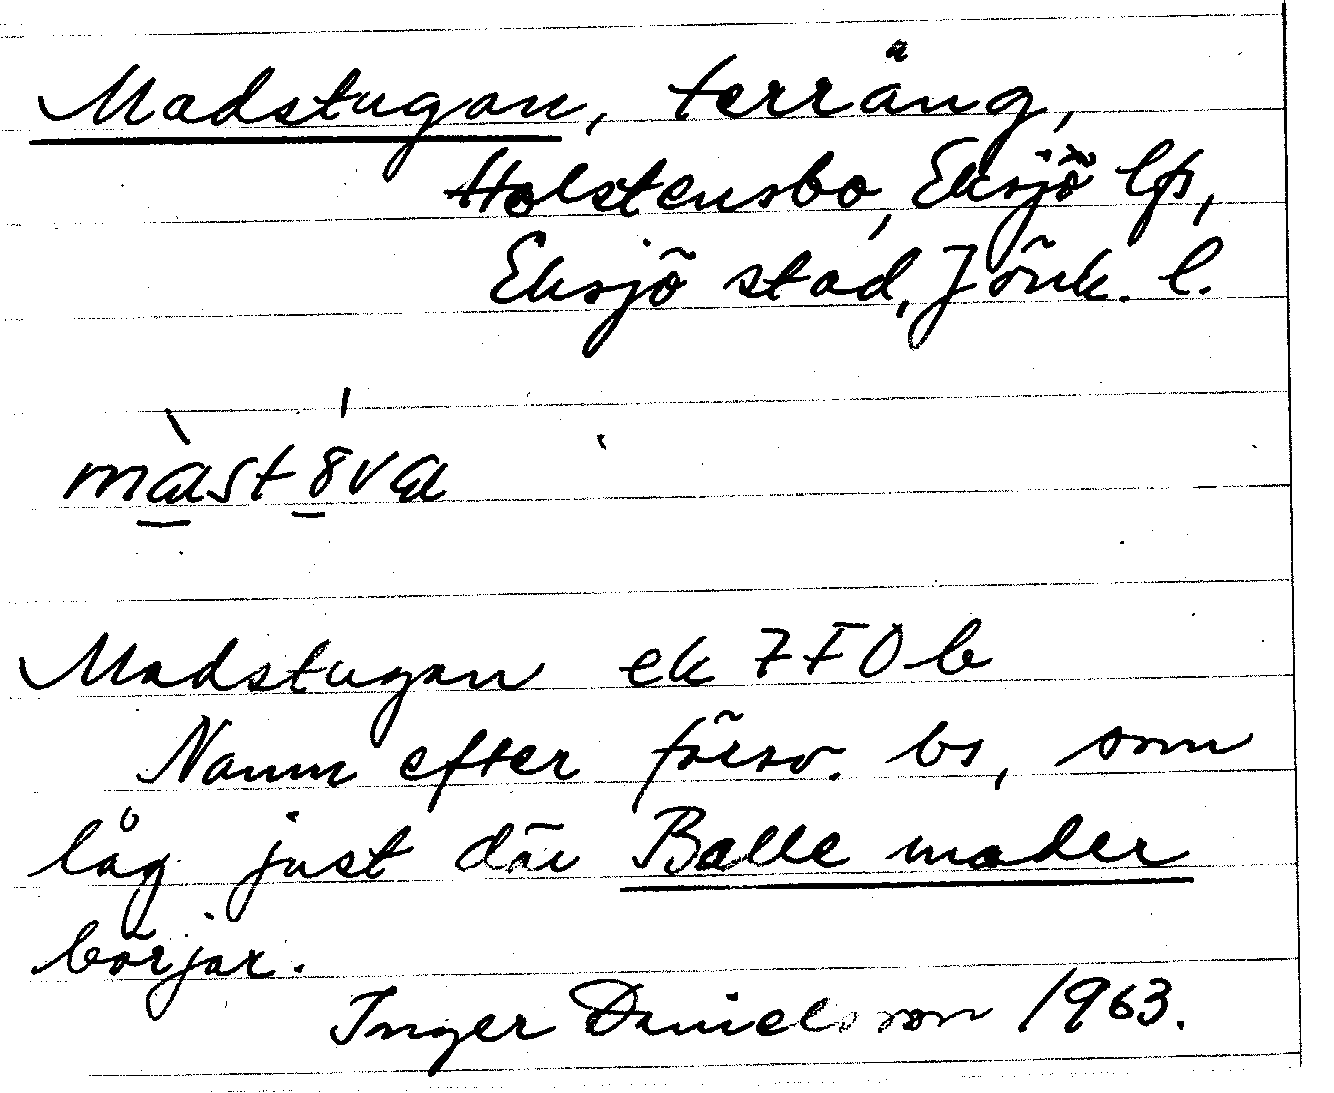 Madstugan, terräng,
Holstensbo, Eksjö lfs,
Eksjö stad, Jönk. l.
Madstugan ek 7F0b
Namn efter försv. bs, som
låg just där Balle mader
börjar.
Inger Danielsson 1963.